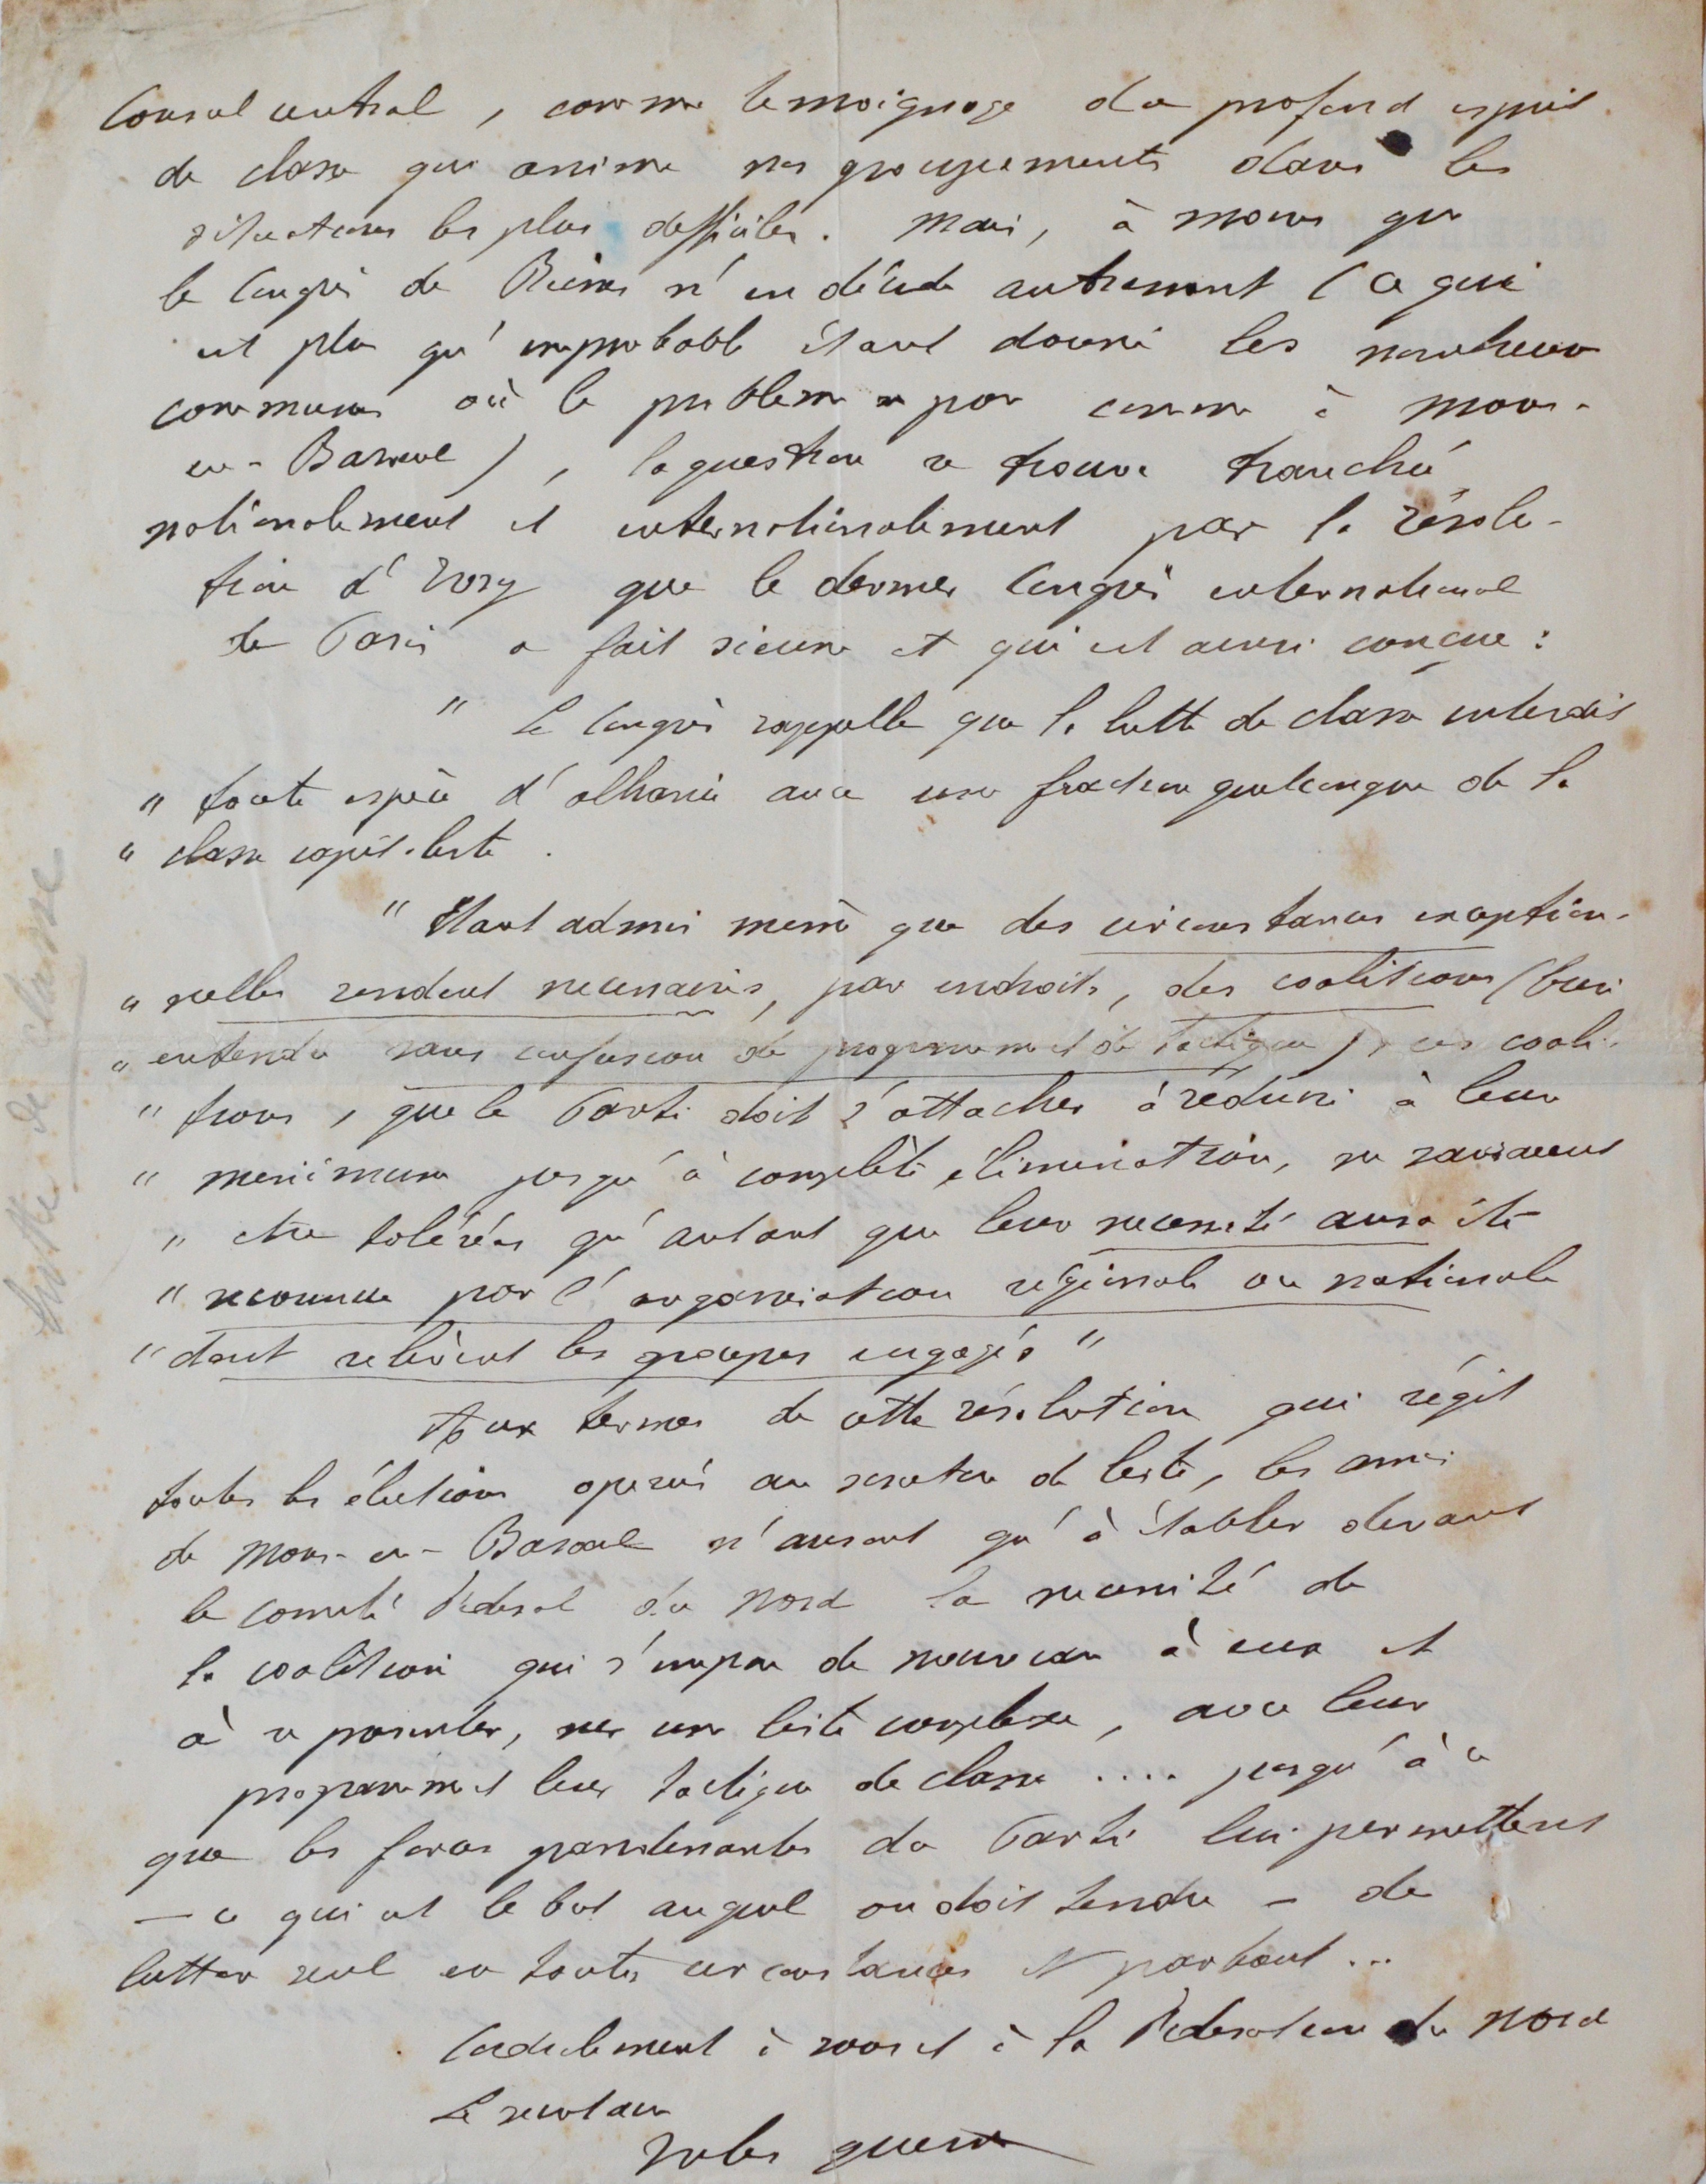 Conseil central, comme témoignage du profond esprit
de classe qui anime nos groupements dans les
situations les plus difficiles. Mais, à moins que
le Congrès de Reims n'en décide autrement (ce qui
est plus qu'improbable étant donné les nombreuses
communes où le problème se pose comme à Mons-
en-Baroeul), la question se trouve tranchée
nationalement et internationalement par la résolu-
tion d'Ivry que le dernier Congrès international
de Paris a fait sienne et qui est ainsi conçue :
" Le Congrès rappelle que la lutte de classe interdit
" toute espèce d'alliance avec une fraction quelconque de la
" classe capitaliste.
" Etant admis même que des circonstances exception-
" nelles rendent nécessaires, par endroits, des coalitions (bien
" entendu sans confusion de programme et de tactique), ces coali-
" tions, que le Parti doit s'attacher à réduire à leur
" minimum jusqu'à complète élimination, ne sauraient
" être tolérées qu'autant que leur nécessité aura été
" reconnue par l'organisation régionale ou nationale
" dont relèvent les groupes engagés "
Aux termes de cette résolution qui régit
toutes les élections opérées au scrutin de liste, les amis
de Mons-en-Baroeul n'auront qu'à établir devant
le comité fédéral du Nord la nécessité de
la coalition qui s'impose de nouveau à eux et
à se présenter, sur une liste complexe, avec leur
programme et leur tactique de classe .... jusqu'à ce
que les forces grandissantes du Parti lui permettent
— ce qui est le but auquel on doit tendre — de
lutter seul en toutes circonstances et partout ...
Cordialement à vous et à la Fédération du Nord
Le secrétaire
Jules Guesde
lutte de classe